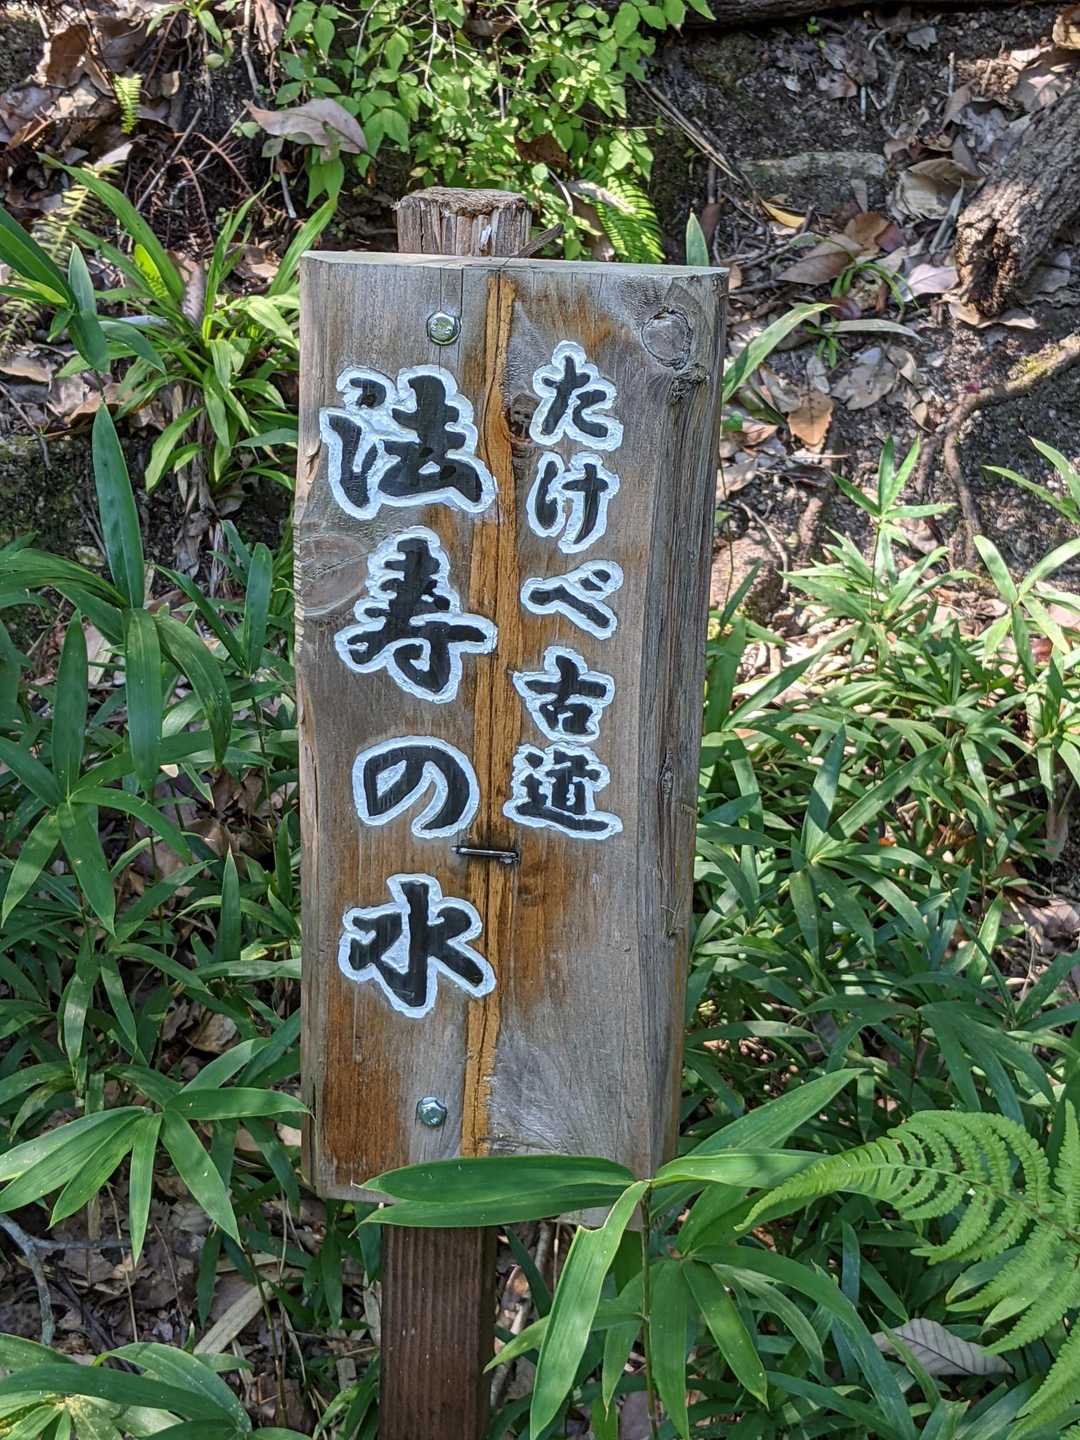 たけべ古道
法寿の水